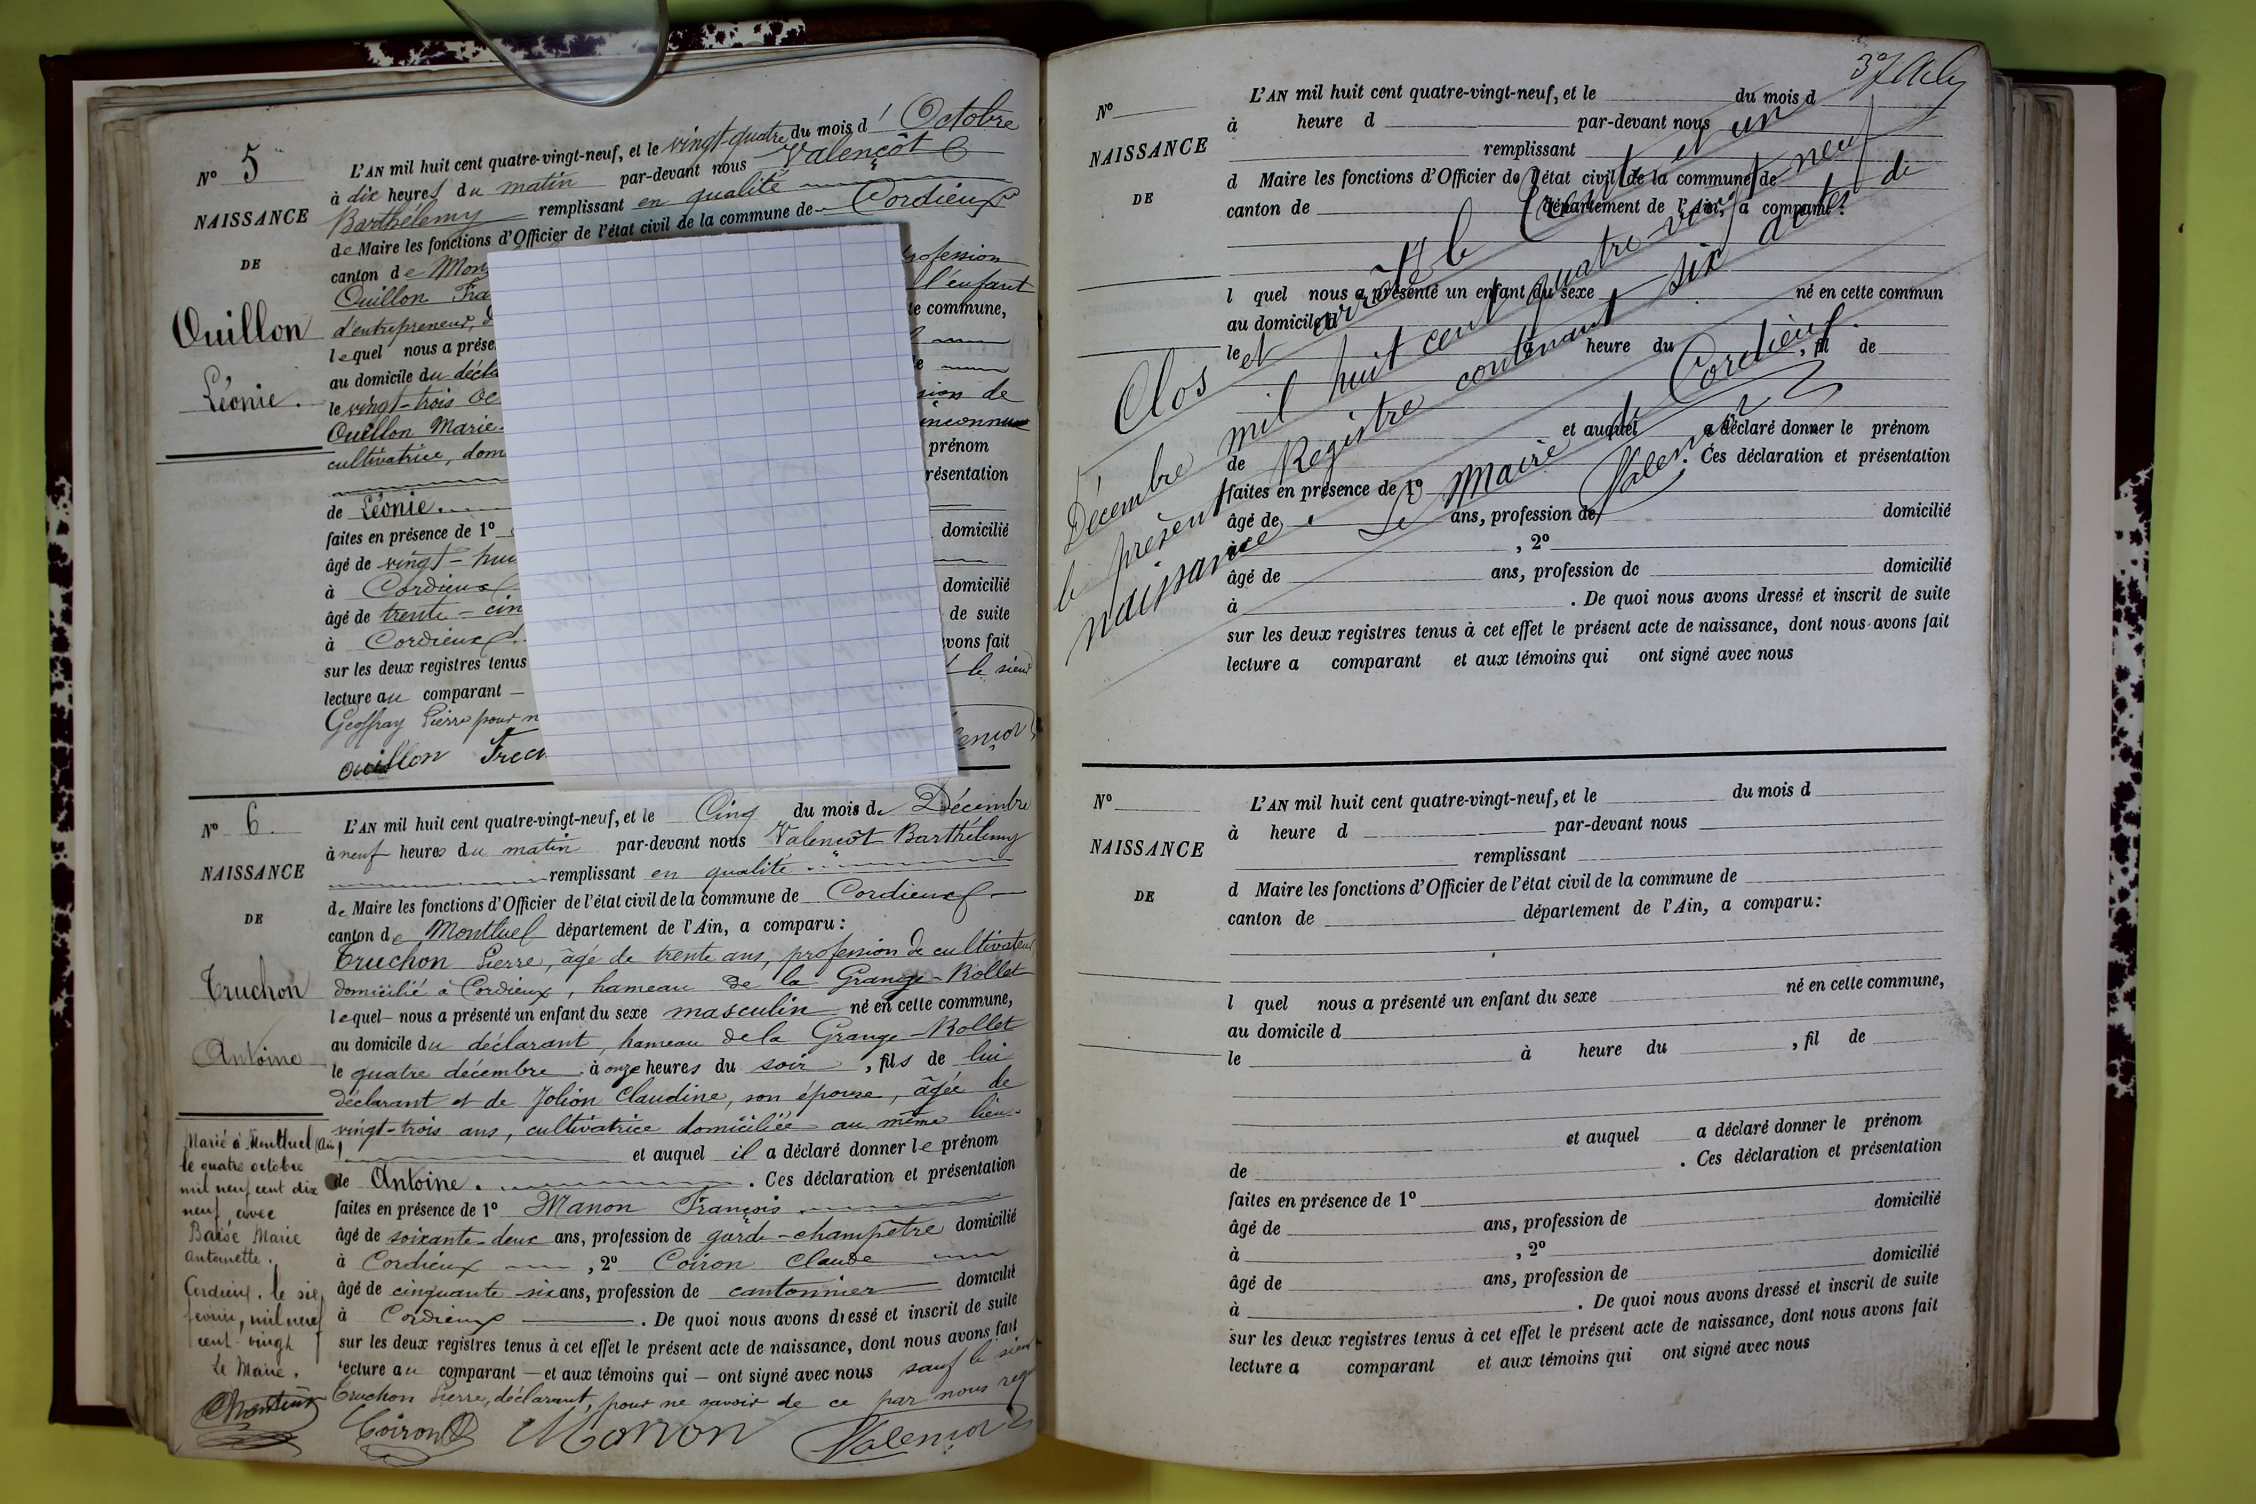 Nº 5
NAISSANCE
DE
Ouillon
Léonie.
L'AN mil huit cent quatre-vingt-neuf, et le vingt-quatre du mois d'Octobre
à dix heures du matin par-devant nous Valençot
Barthélemy remplissant en qualité
de Maire les fonctions d'Officier de l'état civil de la commune de Cordieux
canton de Mon
Ouillon Fra profession
d'entrepreneur, l'enfant
lequel nous a prése te commune,
au domicile du décla
le vingt-trois Oc
Ouillon Marie sion de
inconnu
cultivatrice, dom prénom
résentation
de Léonie.
faites en présence de 1º domicilié
âgé de vingt-hui
à Cordieux domicilié
âgé de trente-cin de suite
à Cordieux vons fait
sur les deux registres tenus le sieur
lecture au comparant
Geoffray Pierre pour n
ouillon
Nº 6.
NAISSANCE
DE
Truchon
Antoine
L'AN mil huit cent quatre-vingt-neuf, et le Cinq du mois de Décembre
à neuf heures du matin par-devant nous Valençot Barthélemy
remplissant en qualité
de Maire les fonctions d'Officier de l'état civil de la commune de Cordieux
canton de Montluel département de l'Ain, a comparu :
Truchon Pierre, âgé de trente ans, profession de cultivateur
domicilié à Cordieux, hameau de la Grange-Rollet
lequel nous a présenté un enfant du sexe masculin né en cette commune,
au domicile du déclarant, hameau de la Grange-Rollet
le quatre décembre à onze heures du soir, fils de lui
déclarant et de Jolion Claudine, son épouse, âgée de
vingt-trois ans, cultivatrice domiciliée au même lieu
et auquel il a déclaré donner le prénom
de Antoine. . Ces déclaration et présentation
faites en présence de 1º Manon François
âgé de soixante-deux ans, profession de garde-champêtre domicilié
à Cordieux , 2º Coiron Claude
âgé de cinquante-six ans, profession de cantonnier domicilié
à Cordieux . De quoi nous avons dressé et inscrit de suite
sur les deux registres tenus à cet effet le présent acte de naissance, dont nous avons fait
lecture au comparant — et aux témoins qui — ont signé avec nous sauf le sieur
Truchon Pierre, déclarant, pour ne savoir de ce par nous requ
Coiron Manon Valençot
Marié à Montluel (Ain)
le quatre octobre
mil neuf cent dix
neuf, avec
Marie
Antoinette.
Cordieux, le six
février, mil neuf
cent-vingt
Le Maire.
Nº
NAISSANCE
DE
L'AN mil huit cent quatre-vingt-neuf, et le du mois d
à heure d par-devant nous
remplissant
d Maire les fonctions d'Officier de l'état civil de la commune de
canton de département de l'Ain, a comparu :
l quel nous a présenté un enfant du sexe né en cette commun
au domicile d
le à heure du , fil de
et auquel a déclaré donner le prénom
de . Ces déclaration et présentation
faites en présence de 1º
âgé de ans, profession de domicilié
à , 2º
âgé de ans, profession de domicilié
à . De quoi nous avons dressé et inscrit de suite
sur les deux registres tenus à cet effet le présent acte de naissance, dont nous avons fait
lecture a comparant et aux témoins qui ont signé avec nous
Clos et arrêté le trente et un
Décembre mil huit cent quatre-vingt neuf
le présent Registre contenant six actes de
naissance. Le Maire de Cordieux.
Valençot
Nº
NAISSANCE
DE
L'AN mil huit cent quatre-vingt-neuf, et le du mois d
à heure d par-devant nous
remplissant
d Maire les fonctions d'Officier de l'état civil de la commune de
canton de département de l'Ain, a comparu :
l quel nous a présenté un enfant du sexe né en cette commune,
au domicile d
le à heure du , fil de
et auquel a déclaré donner le prénom
de . Ces déclaration et présentation
faites en présence de 1º
âgé de ans, profession de domicilié
à , 2º
âgé de ans, profession de domicilié
à . De quoi nous avons dressé et inscrit de suite
sur les deux registres tenus à cet effet le présent acte de naissance, dont nous avons fait
lecture a comparant et aux témoins qui ont signé avec nous